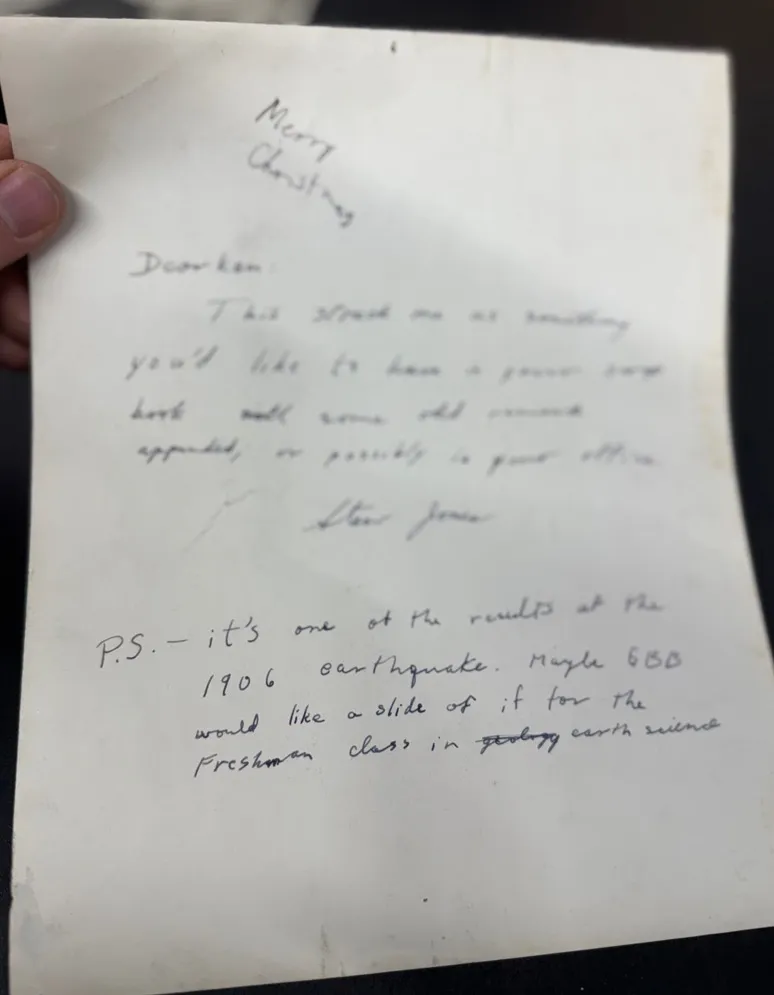 Merry
Christmas
Dear Ken:
This struck me as something
you'd like to have
book with some old
appended, or possibly in your office
Steve Jones
P.S. – it's one of the results of the
1906 earthquake. Maybe GBB
would like a slide of it for the
Freshman class in geology earth science